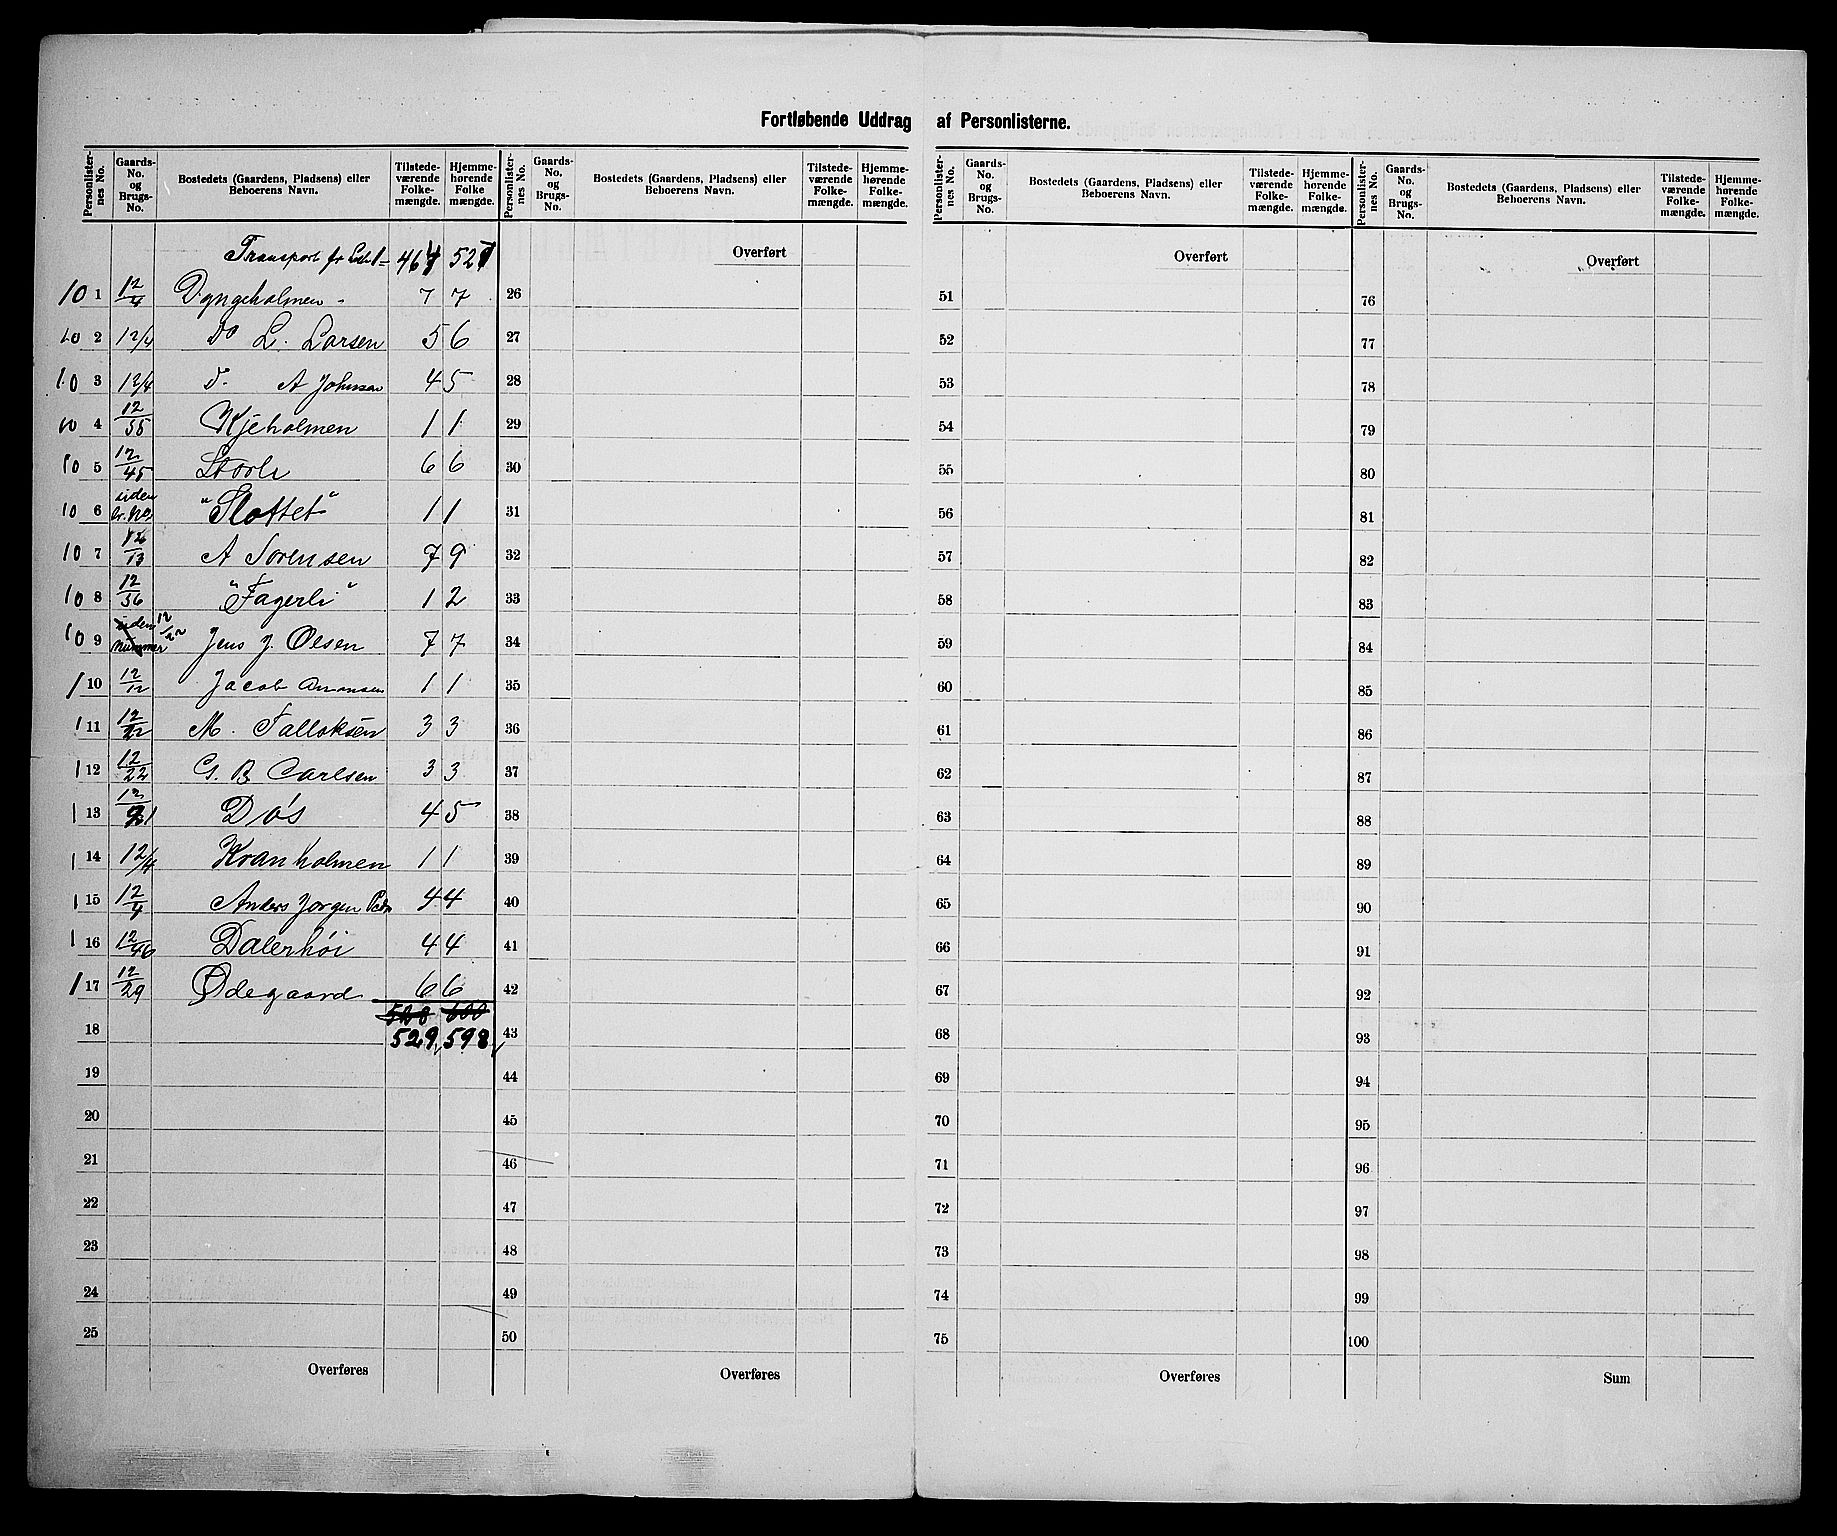 Fortløbende Uddrag af Personlisterne.
Personlister-nes No. | Gaards-No. og Brugs-No. | Bostedets (Gaardens, Pladsens) eller Beboerens Navn. | Tilstede-værende Folke-mængde. | Hjemme-hørende Folke mængde.
Transport fr 46 52
10 1 12/4 Dyngeholmen - 7 7
10 2 12/4 Do L. Larsen 5 6
10 3 12/4 D. A Johnsen 4 5
10 4 12/55 Kjeholmen 1 1
10 5 12/45 Storli 6 6
10 6 uden br. no "Slottet" 1 1
10 7 12/13 A Sorensen 7 9
10 8 12/56 "Fagerli" 1 2
10 9 uden nummer 12/22 Jens J. Olsen 7 7
1 10 12/12 Jacob 1 1
1 11 12/22 M. Falloksen 3 3
1 12 12/22 G. B Carlsen 3 3
1 13 Do's 4 5
1 14 12/4 Kranholmen 1 1
1 15 12/4 Anders Jorgen Peders 4 4
1 16 12/46 Dalerhöi 4 4
1 17 12/29 Ødegaard 6 6
600
18 529 598
19
20
21
22
23
24
25
Overføres
Personlister-nes No. | Gaards-No. og Brugs-No. | Bostedets (Gaardens, Pladsens) eller Beboerens Navn. | Tilstede-værende Folke-mængde. | Hjemme-hørende Folke-mængde.
Overført
26
27
28
29
30
31
32
33
34
35
36
37
38
39
40
41
42
43
44
45
46
47
48
49
50
Overføres
Personlister-nes No. | Gaards-No. og Brugs-No. | Bostedets (Gaardens, Pladsens) eller Beboerens Navn. | Tilstede-værende Folke-mængde. | Hjemme-hørende Folke-mængde.
Overført
51
52
53
54
55
56
57
58
59
60
61
62
63
64
65
66
67
68
69
70
71
72
73
74
75
Overføres
Personlister-nes No. | Gaards-No. og Brugs-No. | Bostedets (Gaardens, Pladsens) eller Beboerens Navn. | Tilstede-værende Folke-mængde. | Hjemme-hørende Folke-mængde.
Overført
76
77
78
79
80
81
82
83
84
85
86
87
88
89
90
91
92
93
94
95
96
97
98
99
100
Sum